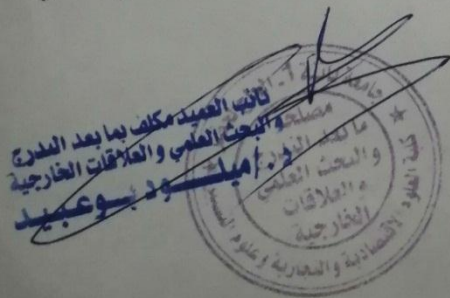 نائب العميد مكلف بما بعد التدرج
و البحث العلمي و العلاقات الخارجية
د. أ ميلود بوعبيد
مصلحة
ما بعد التدرج
و البحث العلمي
و العلاقات
الخارجية
جامعة
كلية العلوم الاقتصادية و التجارية و علوم